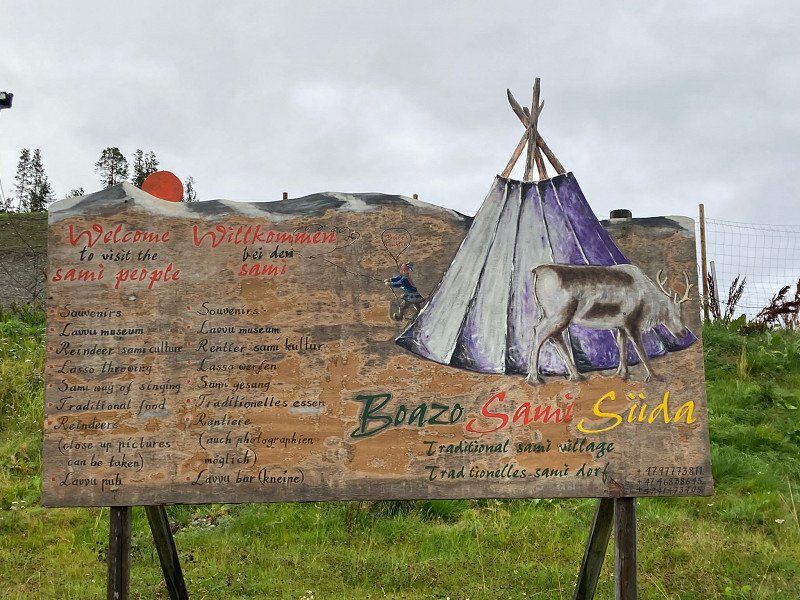 Welcome
to visit the
sami people
Souvenirs
Lavvu museum
Reindeer sami culture
Lasso throwing
Sami way of singing
Traditional food
Reindeers
(close up pictures
can be taken)
Lavvu pub
Willkommen
bei den
sami
Souvenirs
Lavvu museum
Rentier sami kultur
Lasso werfen
Sami gesang
Traditionelles essen
Rentiere
(auch photographien
möglich)
Lavvu bar (kneipe)
Boazo Sami Siida
Traditional sami village
Traditionelles sami dorf